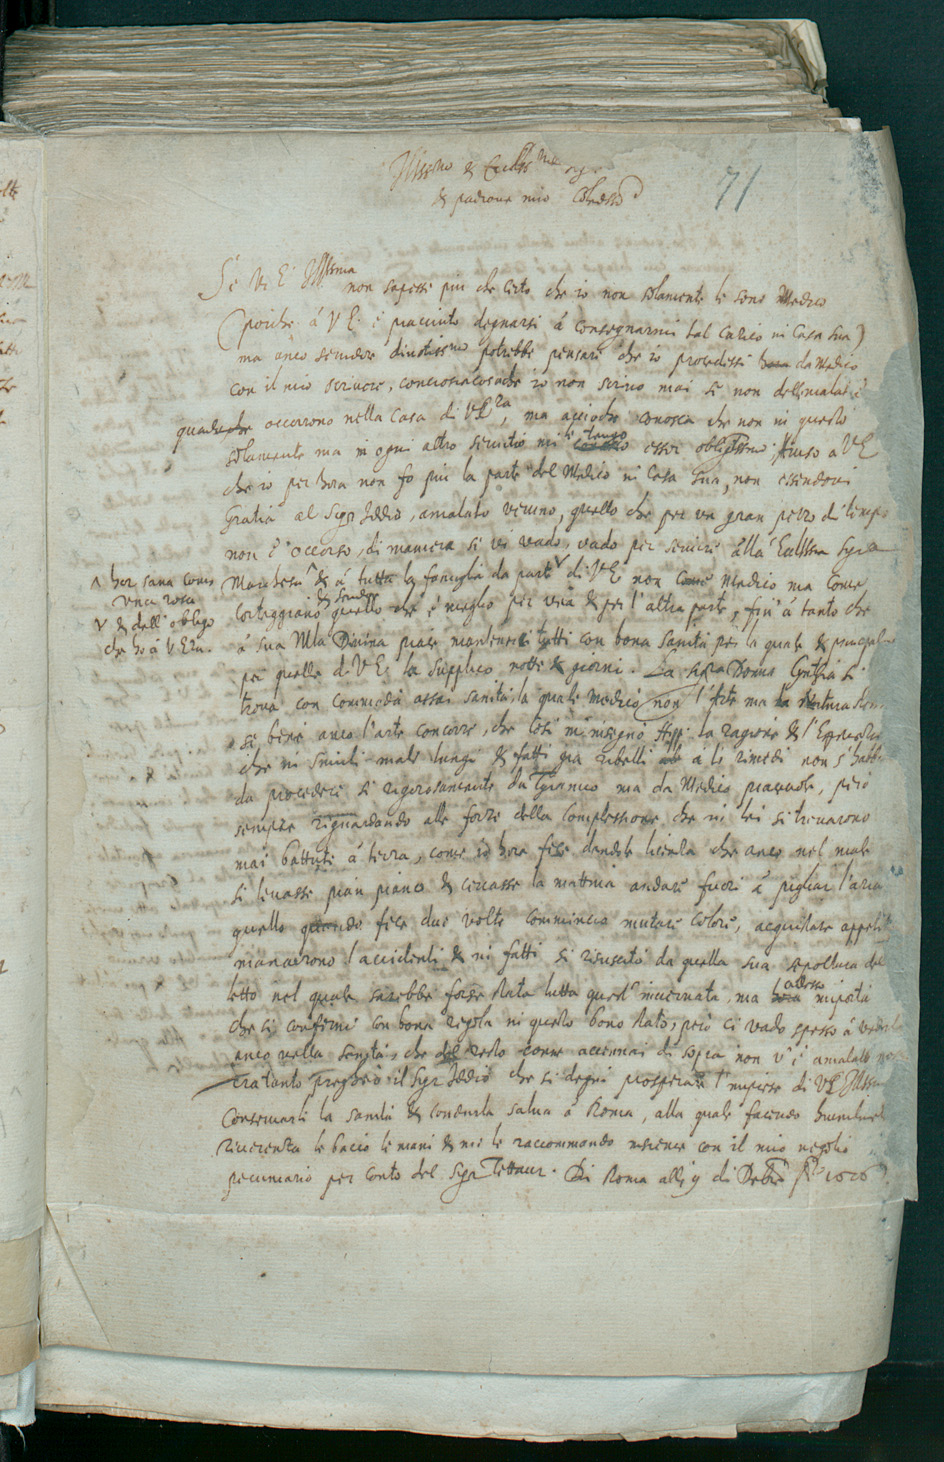 Illssmo & Eccllssmo sigr
& padrone mio Colendssmo
71
Se V. E. Illssma non sapesse piu che certo che io non solamente le sono Medico
(poiche á V E. è piacciuto degnarsi á consegnarmi tal carico in Casa sua)
ma anco servidore divotissmo potrebbe pensare che io procedessi da Medico
con il mio scrivere, conciosiacosache io non scrivo mai se non dell'malatie
qualiche occorrono nella Casa di V E, ma accioche conosca che non in questo
solamente ma in ogni altro servitio mi le tengo esser obligtssmo, Aviso a V E
che io per hora non fo piu la parte del Medico in Casa sua, non essendovi
Gratia al Sigr Iddio, amalato veruno, quello che per un gran pezzo di tempo
non è occorso, di maniera se vi vado, vado per servire alla Eccllssma Sigra
Marchesa ^ & á tutta la famiglia da parte V di V E non come Medico ma come
^ hor sana como
una rosa
V & dell'obligo
che ho á V Eza.
Corteggiano & servidore quello che è meglio per una & per l'altra parte, fin'á tanto che
á sua Mta Divina piace mantenere tutti con bona sanità per la quale & principalmte
per quella di V E. la supplico notte & giorni. La sigra Donna Cynthia si
trova con commoda assai sanità, la quale medicò non l'Arte ma la Natura
se bene anco l'arte concorre, che così m'insegnò la ragione & l'Esperientia
che in simili mali lungi & fatti gia ribelli a le rimedi non s'habbia
da procedere si rigorosamente da Tyranno ma da Medico piacevole, però
sempre riguardando alle forze della complessione che in lei si trovarono
mai battute á terra, come io hora feci dandole licenza che anco nel male
si levasse pian piano & cercasse la mattina andare fuori á pigliar l'aria
quello quando fece due volte comminciò mutare colore, acquistare appetito
mancarono l'accidenti & in fatti si risuscitò da quella sua sepoltura del
letto nel quale sarebbe forse stata tutta quest'invernata, ma adesso importa
che si confermi con bona regola in questo bono stato, però ci vado spesso á vederla
anco nella sanità, che del resto come accennai di sopra non v'è amalato
Tratanto pregherò il Sigr Iddio che si degni prosperare l'imprese di V E Illssma
conservarli la sanità & condurla salva á Roma, alla quale facendo humilmte
riverenza le bacio le mani & me le raccommando insieme con il mio negotio
pecuniario per conto del Sigr Tettaur. Di Roma alli 9 di Debre